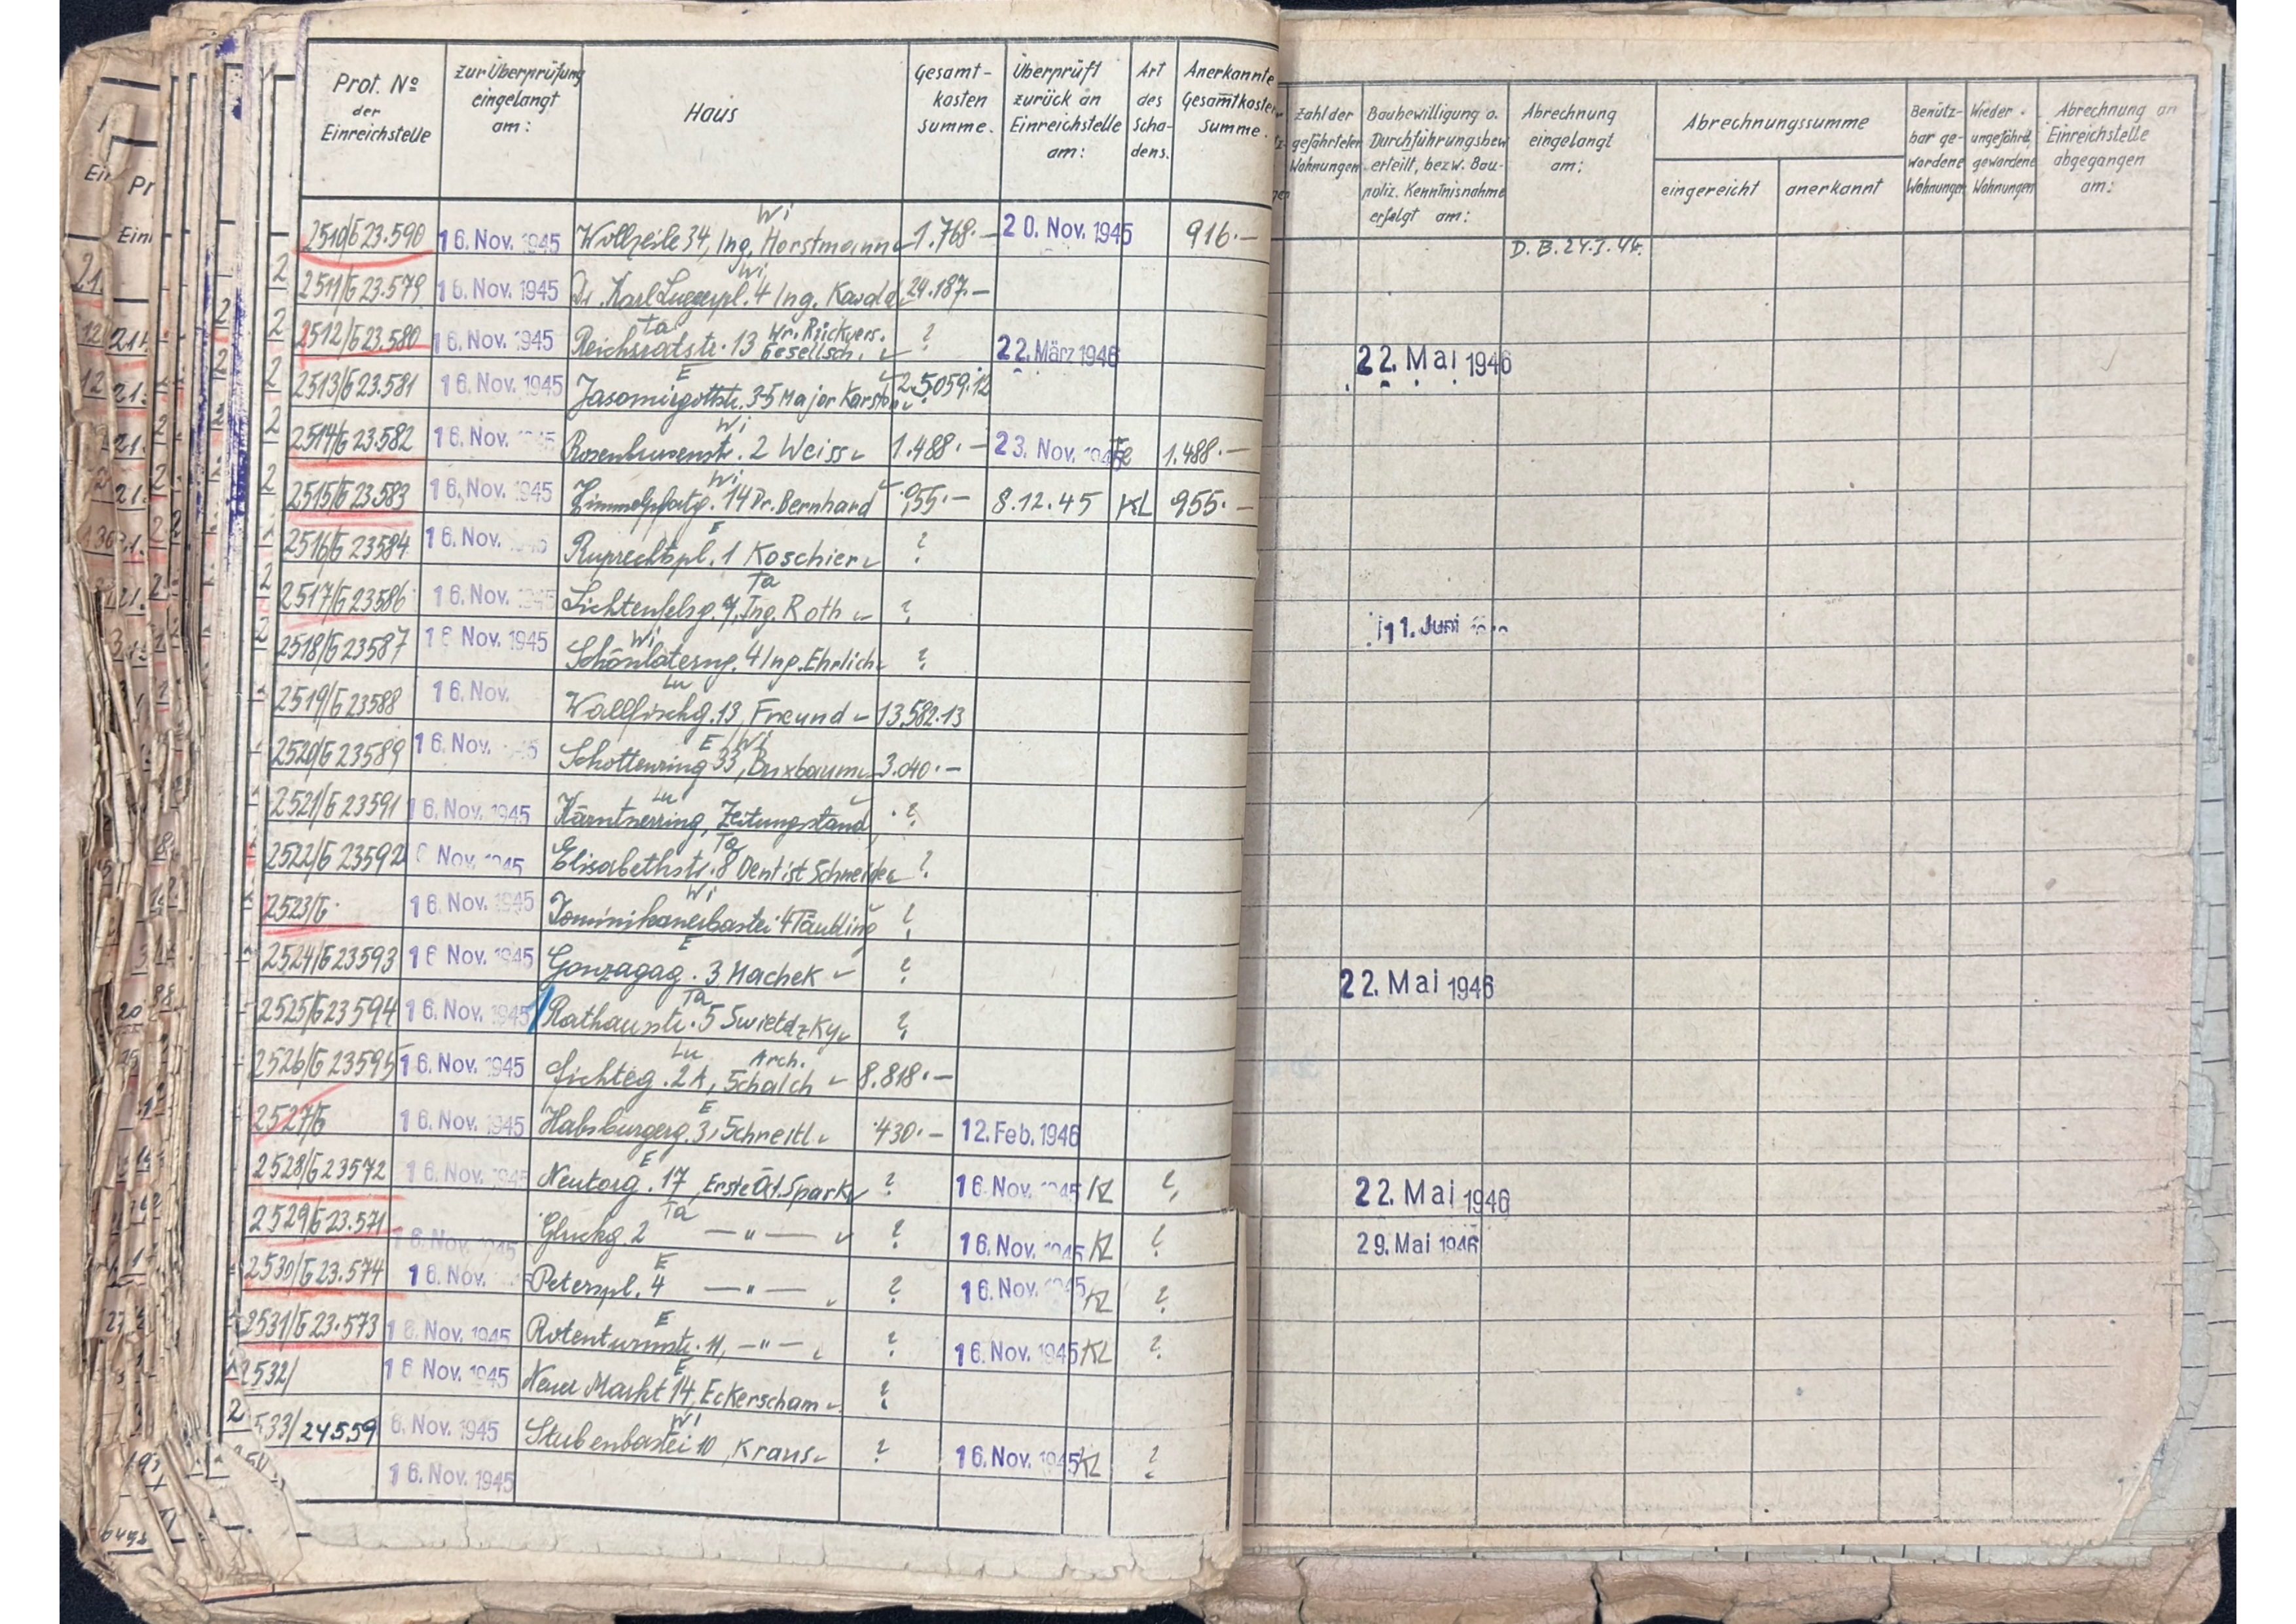 Prot. Nº der Einreichstelle | zur Überprüfung eingelangt am: | Haus | Gesamtkosten summe. | Überprüft zurück an Einreichstelle am: | Art des Schadens. | Anerkannte Gesamtkosten Summe.
Zahl der gefährdeten Wohnungen | Baubewilligung o. Durchführungsbew. erteilt, bezw. Baupoliz. Kenntnisnahme erfolgt am: | Abrechnung eingelangt am: | Abrechnungssumme | eingereicht | anerkannt | Benützbar gewordene Wohnungen | Wieder ungefährd. gewordene Wohnungen | Abrechnung an Einreichstelle abgegangen am:
2510/G 23.590 | 16. Nov. 1945 | Wi Wollzeile 34, Ing. Horstmann | 1.768.— | 20. Nov. 1945 | 916.— | D. B. 24.I.44.
2511/G 23.579 | 16. Nov. 1945 | Wi Dr. Karl Luegerpl. 4 Ing. Kawala | 24.187.—
2512/G 23.580 | 16. Nov. 1945 | Ta Reichsratstr. 13 Wr. Rückvers. Gesellsch. | ? | 22. März 1946 | 22. Mai 1946
2513/G 23.581 | 16. Nov. 1945 | E Jasomirgottstr. 3-5 Major Karston | 25.059.12
2514/G 23.582 | 16. Nov. 1945 | Wi Rosenbursenstr. 2 Weiss | 1.488.— | 23. Nov. 1945 | 1.488.—
2515/G 23.583 | 16. Nov. 1945 | Wi Himmelpfortg. 14 Dr. Bernhard | 955.— | 8.12.45 | KL | 955.—
2516/G 23584 | 16. Nov. 1945 | E Ruprechtspl. 1 Koschier | ?
2517/G 23586 | 16. Nov. 1945 | Ta Lichtenfelsg. 7, Ing. Roth | ? | 11. Juni
2518/G 23587 | 16. Nov. 1945 | Wi Schönlaterng. 4 Ing. Ehrlich | ?
2519/G 23588 | 16. Nov. | Lu Wallfischg. 13, Freund | 13.582.13
2520/G 23589 | 16. Nov. | E/Wi Schottenring 33, Buxbaum | 3.040.—
2521/G 23591 | 16. Nov. 1945 | Lu Kärntnerring, Zeitungstand | ?
2522/G 23592 | 6 Nov. 1945 | Ta Elisabethstr. 8 Dentist Schneider | ?
2523/G | 16. Nov. 1945 | Wi Dominikanerbastei 4 Täubling | ?
2524/G 23593 | 16 Nov. 1945 | E Gonzagag. 3 Machek | ? | 22. Mai 1946
2525/G 23594 | 16. Nov. 1945 | Ta Rathausstr. 5 Swietdzky | ?
2526/G 23595 | 16. Nov. 1945 | Lu Fichteg. 2A, Arch. Schalch | 8.818.—
2527/G | 16. Nov. 1945 | E Habsburgerg. 3, Schneitl. | 430.— | 12. Feb. 1946
2528/G 23572 | 16. Nov. 1945 | E Neutorg. 17, Erste Öst. Spark | ? | 16. Nov. 1945 | KL | ? | 22. Mai 1946
2529/G 23.571 | 16. Nov. 1945 | Ta Gluckg. 2 —"— | ? | 16. Nov. 1945 | KL | ? | 29. Mai 1946
2530/G 23.574 | 16. Nov. | E Peterspl. 4 —"— | ? | 16. Nov. 1945 | KL | ?
2531/G 23.573 | 16. Nov. 1945 | E Rotenturmstr. 11, —"— | ? | 16. Nov. 1945 | KL | ?
2532/ | 16 Nov. 1945 | E Neuer Markt 14, Eckerscham | ?
2533/24559 | 6. Nov. 1945 | Wi Stubenbastei 10, Kraus | ? | 16. Nov. 1945 | KL | ?
16. Nov. 1945